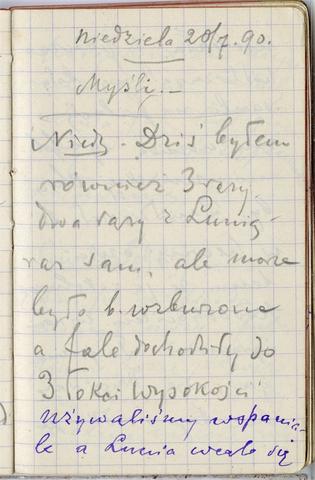 niedziela 20/7.90.
Myśli.—
Niedz. Dziś byłem
również 3 razy.
dwa razy z Lunią-
raz sam, ale morze
było b. wzburzone
a fale dochodziły do
3 łokci wysokości
używaliśmy wspania-
le a Lunia wcale się